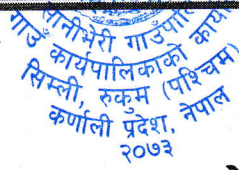 सानीभेरी गाउँपा
गाउँ कार्यपालिकाको कार्या
सिम्ली, रुकुम (पश्चिम)
कर्णाली प्रदेश, नेपाल
२०७३